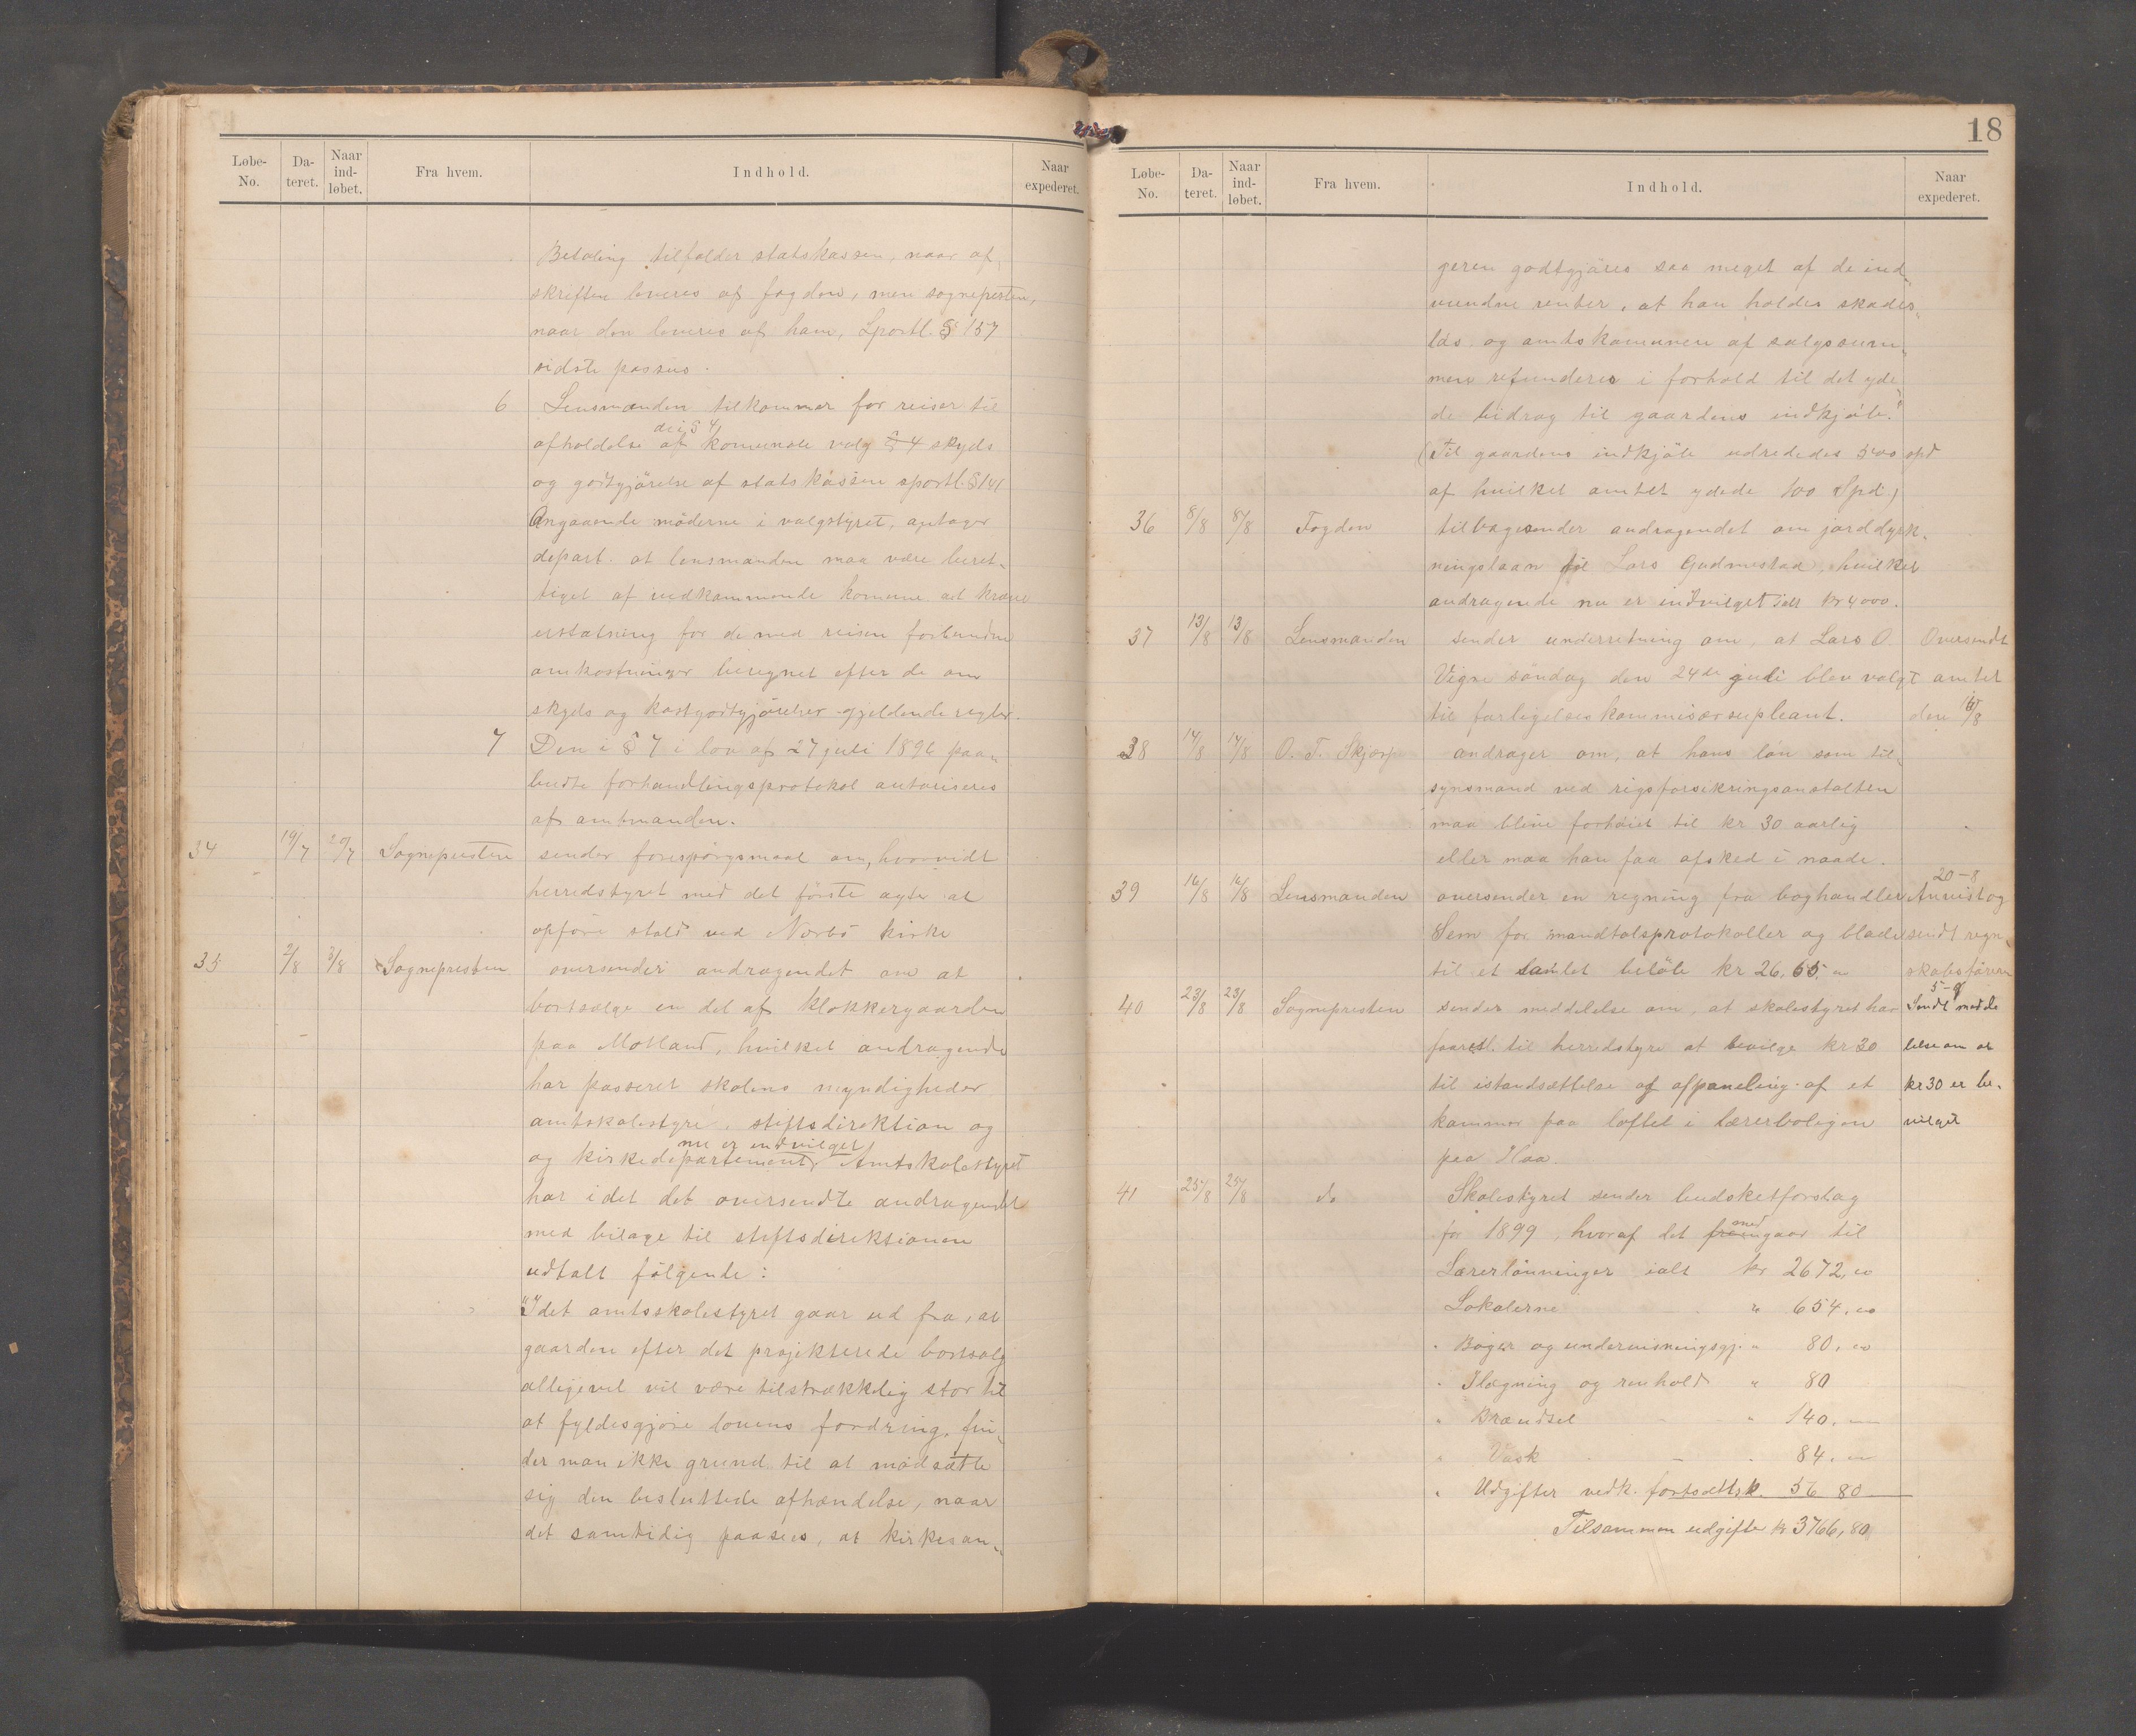 Løbe-No. Da-teret. Naar ind-løbet. Fra hvem. Indhold. Naar expederet.
Betaling tilfalder statskassen, naar af-
skriften leveres af fogden, men sognepresten,
naar den leveres af ham, Sportl. § 157
sidste passus.
6 Lensmanden tilkommer for reiser til
afholdelse af de i § 4 komunale valg § 4 skyds
og godtgjörelse af statskassen sportl. § 141
Angaaende möderne i valgstyret, antager
depart. at lensmanden maa være beret-
tiget af vedkommende komune at kræve
erstatning for de med reisen forbundne
omkostninger beregnet efter de om
skyds og kostgodtgjörelser gjeldende regler.
7 Den i § 7 i lov af 27 juli 1896 paa-
budte forhandlingsprotokol autoriseres
af amtmanden.
34 19/7 20/7 Sognepresten sender forespörgsmaal om, hvorvidt
herredstyret med det förste agter at
opföre stald ved Nærbö kirke
35 2/8 3/8 Sognepresten oversender andragendet om at
bortsælge en del af klokkergaarden
paa Motland, hvilket andragende
har passeret skolens myndigheder
amtskolestyre, stiftsdirektion og
og kirkedepartement nu er indvilget. Amtskolestyret
har idet det oversendte andragendet
med bilage til stiftsdirektionen
udtalt fölgende:
"Idet amtsskolestyret gaar ud fra, at
gaarden efter det projekterede bortsalg
alligevel vil være tilstrækkelig stor til
at fyldesgjöre lovens fordring, fin-
der man ikke grund til at modsætte
sig den besluttede afhændelse, naar
det samtidig paasees, at kirkesan-
18
Løbe-No. Da-teret. Naar ind-løbet. Fra hvem. Indhold. Naar expederet.
geren godtgjöres saa meget af de ind-
vundne renter, at han holdes skades-
lös og amtskomunen af salgssum-
men refunderes i forhold til det yde-
de bidrag til gaardens indkjöb."
(Til gaardens indkjöb udrededes 500 spd
af hvilket amtet ydede 100 Spd.)
36 8/8 8/8 Fogden tilbagesender andragendet om jorddyrk-
ningslaan til Lars Gudmestad, hvilket
andragende nu er indvilget ialt kr 4000.
37 13/8 13/8 Lensmanden sender underretning om, at Lars O. Oversendt
Vigre söndag den 24de juli blev valgt amtet
til forligelseskommisærsupleant. den 16/8
38 14/8 14/8 O. T. Skjærp andrager om, at hans lön som til-
synsmand ved rigsforsikringsanstalten
maa blive forhöiet til kr 30 aarlig
eller maa han faa afsked i naade.
39 16/8 16/8 Lensmanden oversender en regning fra boghandler 20-8 Anvist og
Sem for mandtalsprotokoller og blade sendt regn-
til et samlet belöb kr 26,65. skabsföreren
40 23/8 23/8 Sognepresten sender meddelelse om, at skolestyret har 5-9 Sendt medde
foaresl. til herredstyre at bevilge kr 30 lelse om at
til istandsættelse og afpaneling af et kr 30 er be-
kammer paa loftet i lærerboligen vilget
paa Haa.
41 25/8 25/8 do Skolestyret sender budsketforslag
for 1899, hvoraf det fremgaar med til
Lærerlönninger ialt kr 2672,00
Lokalerne " 654,00
" Böger og undervisningsgj. " 80,00
" Ilægning og renhold " 80
" Brændsel " 140,
" Vask 84,
" Udgifter vedk. fortsættsk. 56 80
Tilsammen udgifter kr 3766,80